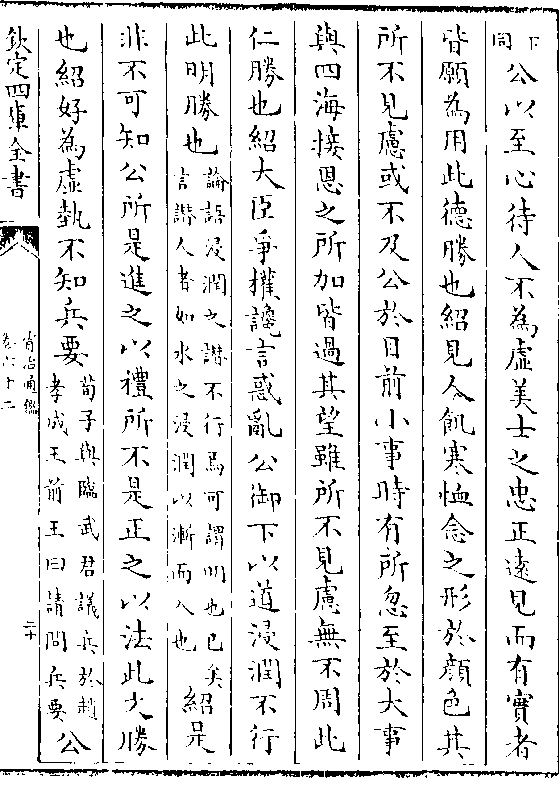 下
同
公以至心待人不為虛美士之忠正逺見而有實者
皆願為用此德勝也紹見人飢寒恤念之形於顔色其
所不見慮或不及公於目前小事時有所忽至於大事
與四海接恩之所加皆過其望雖所不見慮無不周此
仁勝也紹大臣爭權讒言惑亂公御下以道浸潤不行
此明勝也
論語浸潤之譖不行焉可謂明也已矣
言譖人者如水之浸潤以漸而入也
紹是
非不可知公所是進之以禮所不是正之以法此文勝
也紹好為虛埶不知兵要
荀子與臨武君議兵於趙
孝成王前王曰請問兵要
公
欽定四庫全書
資治通鑑
卷六十二
二十